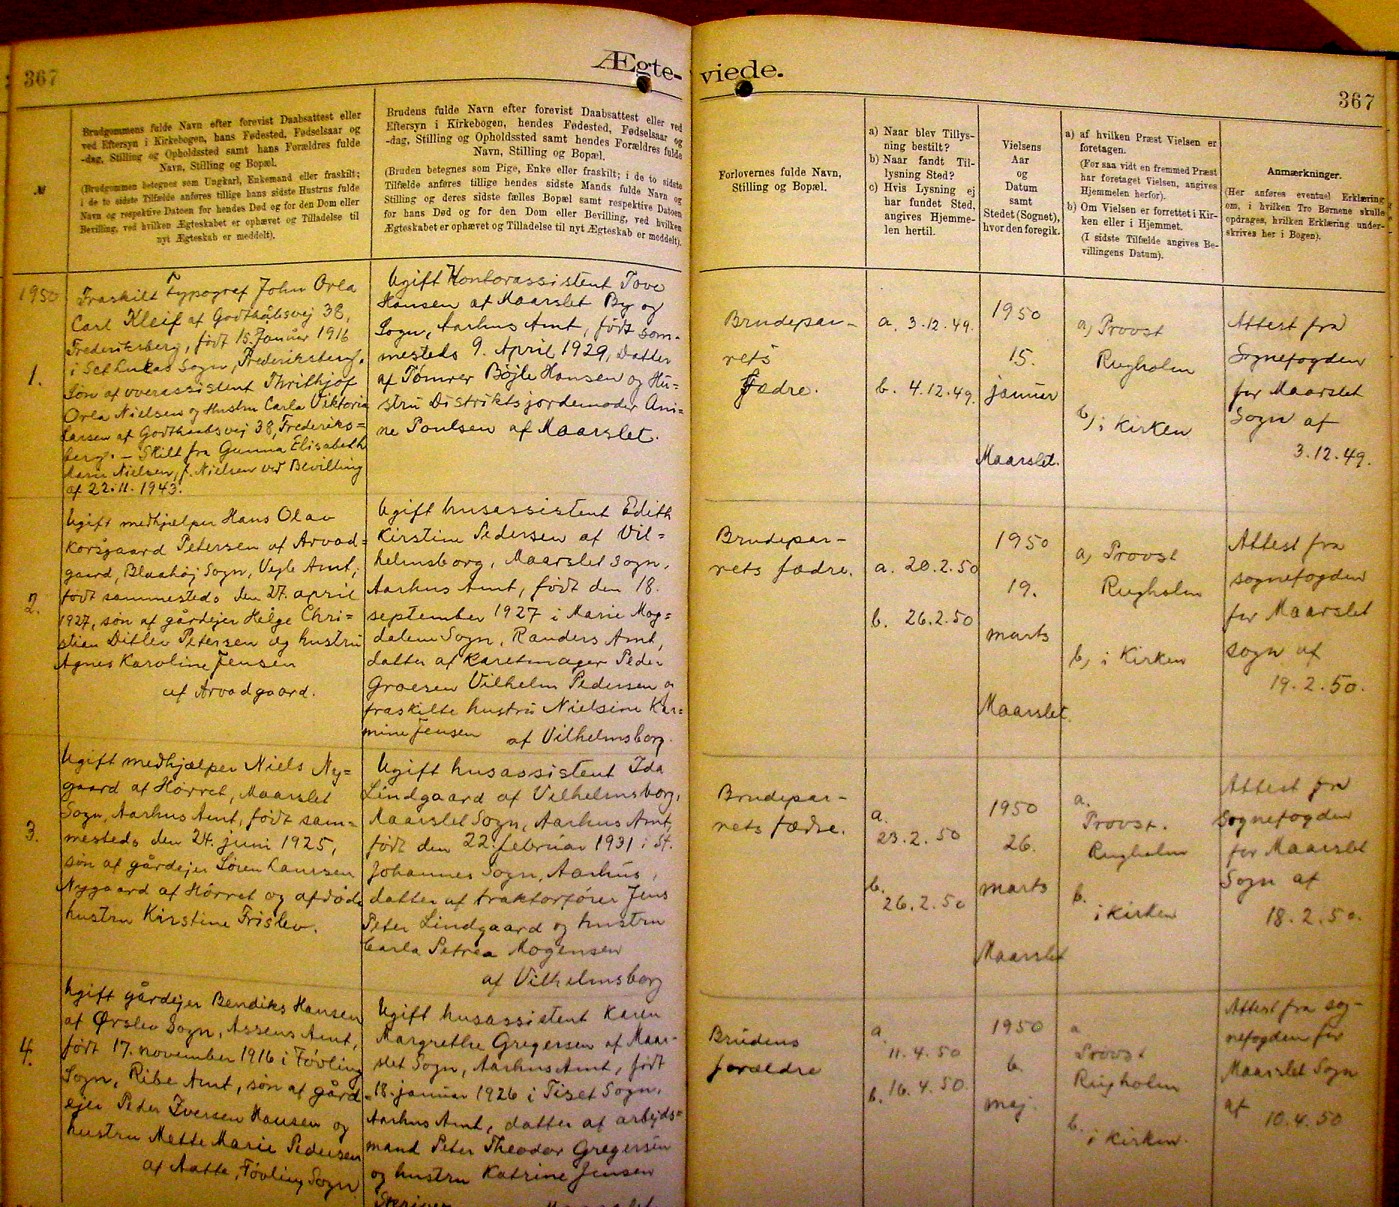 367
Ægte-
Brudgommens fulde Navn efter forevist Daabsattest eller
ved Eftersyn i Kirkebogen, hans Fødested, Fødselsaar og
-dag, Stilling og Opholdssted samt hans Forældres fulde
Navn, Stilling og Bopæl.
(Brudgommen betegnes som Ungkarl, Enkemand eller fraskilt;
i de to sidste Tilfælde anføres tillige hans sidste Hustrus fulde
Navn og respektive Datoen for hendes Død og for den Dom eller
Bevilling, ved hvilken Ægteskabet er ophævet og Tilladelse til
nyt Ægteskab er meddelt).
Brudens fulde Navn efter forevist Daabsattest eller ved
Eftersyn i Kirkebogen, hendes Fødested, Fødselsaar og
-dag, Stilling og Opholdssted samt hendes Forældres fulde
Navn, Stilling og Bopæl.
(Bruden betegnes som Pige, Enke eller fraskilt; i de to sidste
Tilfælde anføres tillige hendes sidste Mands fulde Navn og
Stilling og deres sidste fælles Bopæl samt respektive Datoen
for hans Død og for den Dom eller Bevilling, ved hvilken
Ægteskabet er ophævet og Tilladelse til nyt Ægteskab er meddelt).
1950
1.
Fraskilt typograf John Orla
Carl Kleif af Godthåbsvej 38,
Frederiksberg, født 15. Januar 1916
i Sct Lukas Sogn, Frederiksberg.
Søn af overassistent Thrithjof
Orla Nielsen og Hustru Carla Viktoria
Larsen af Godthaabsvej 38, Frederiks=
berg. – Skilt fra Gunna Elisabeth
Marie Nielsen, f. Nielsen ved Bevilling
af 22.11.1943.
Ugift Kontorassistent Tove
Hansen af Maarslet By og
Sogn, Aarhus Amt, født som=
mesteds 9. April 1929, Datter
af Tømrer Bøjle Hansen og Hu=
stru Distriktsjordemoder Ani=
ne Poulsen af Maarslet.
2.
Ugift medhjælper Hans Olav
Korsgaard Petersen af Arvad=
gaard, Blaahøj Sogn, Vejle Amt,
født sammesteds den 27. april
1927, søn af gårdejer Helge Chri=
stian Ditlev Petersen og hustru
Agnes Karoline Jensen
af Arvadgaard.
Ugift husassistent Edith
Kirstine Pedersen af Vil=
helmsborg, Maarslet Sogn,
Aarhus Amt, født den 18.
september 1927 i Marie Mag=
dalene Sogn, Randers Amt,
datter af karetmager Peder
Graesen Vilhelm Pedersen og
fraskilte hustru Nielsine Kar=
mine Jensen af Vilhelmsborg.
3.
Ugift medhjælper Niels Ny=
gaard af Hørret, Maarslet
Sogn, Aarhus Amt, født sam=
mesteds den 24. juni 1925,
søn af gårdejer Søren Laursen
Nygaard af Hørret og afdøde
hustru Kirstine Frislev.
Ugift husassistent Ida
Lindgaard af Vilhelmsborg,
Maarslet Sogn, Aarhus Amt,
født den 22. februar 1931 i St.
Johannes Sogn, Aarhus,
datter af traktorfører Jens
Peter Lindgaard og hustru
Carla Petrea Mogensen
af Vilhelmsborg
4.
Ugift gårdejer Bendiks Hansen
af Ørslev Sogn, Assens Amt,
født 17. november 1916 i Føvling
Sogn, Ribe Amt, søn af gård=
ejer Peder Iversen Hansen og
hustru Mette Marie Pedersen
af Aatte, Føvling Sogn
Ugift husassistent Karen
Margrethe Gregersen af Maar=
slet Sogn, Aarhus Amt, født
18. januar 1926 i Tiset Sogn,
Aarhus Amt, datter af arbejds=
mand Peter Theodor Gregersen
og hustru Katrine Jensen
viede.
367
Forlovernes fulde Navn,
Stilling og Bopæl.
a) Naar blev Tillys-
ning bestilt?
b) Naar fandt Til-
lysning Sted?
c) Hvis Lysning ej
har fundet Sted,
angives Hjemme-
len hertil.
Vielsens
Aar
og
Datum
samt
Stedet (Sognet),
hvor den foregik.
a) af hvilken Præst Vielsen er
foretagen.
(For saa vidt en fremmed Præst
har foretaget Vielsen, angives
Hjemmelen herfor).
b) Om Vielsen er forrettet i Kir-
ken eller i Hjemmet.
(I sidste Tilfælde angives Be-
villingens Datum).
Anmærkninger.
(Her anføres eventuel Erklæring
om, i hvilken Tro Børnene skulle
opdrages, hvilken Erklæring under-
skrives her i Bogen).
Brudepar-
rets
Fædre.
a. 3.12.49.
b. 4.12.49.
1950
15.
januar
Maarslet.
a) Provst
Rugholm
b) i Kirken
Attest fra
Sognefogden
for Maarslet
Sogn af
3.12.49.
Brudepar-
rets fædre.
a. 20.2.50
b. 26.2.50
1950
19.
marts
Maarslet.
a) Provst
Rugholm
b) i Kirken
Attest fra
sognefogden
for Maarslet
sogn af
19.2.50.
Brudepar-
rets fædre.
a.
23.2.50
b.
26.2.50
1950
26.
marts
Maarslet
a.
Provst.
Rugholm
b.
i Kirken
Attest fra
Sognefogden
for Maarslet
Sogn af
18.2.50.
Brudens
forældre
a.
11.4.50
b. 16.4.50.
1950
6.
maj.
a.
Provst
Rugholm
b.
i Kirken.
Attest fra sog-
nefogden for
Maarslet Sogn
af
10.4.50